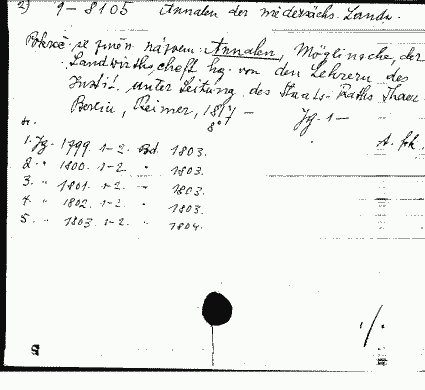 2) 9-8105 Annalen der niedersächs. Landw.
Pokrač. se jiným názvem: Annalen, Möglinsche, der
Landwirthschaft hg. von den Lehrern des
Instit. unter Leitung des Staats-Raths Thaer
Berlin, Reimer, 1817 - Jg. 1-
8°
1. Jg. 1799. 1-2. Bd. 1803.
2. " 1800. 1-2. " 1803.
3. " 1801. 1-2. " 1803.
4. " 1802. 1-2. " 1803.
5. " 1803. 1-2. " 1804.